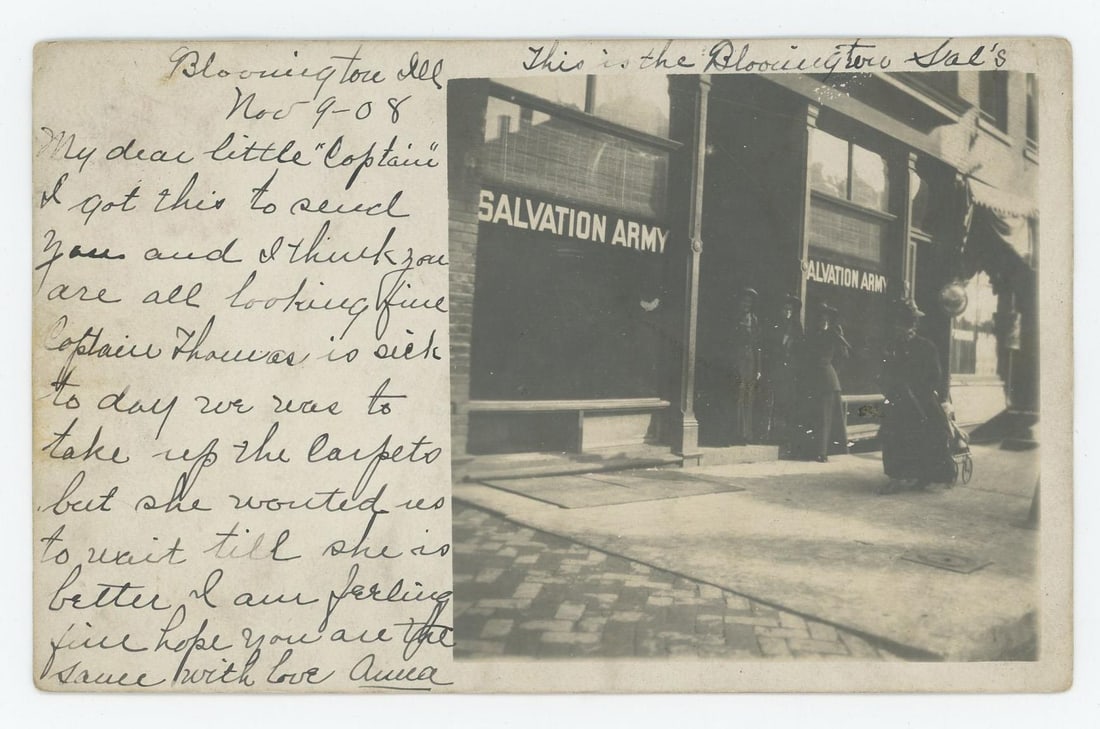 Bloomington Ill
Nov 9-08
My dear little "Captain"
I got this to send
you and I think you
are all looking fine
Captain Thomas is sick
to day we was to
take up the Carpets
but she wanted us
to wait till she is
better I am feeling
fine hope you are the
same with love Anna
This is the Bloomington Sal's
SALVATION ARMY
SALVATION ARMY